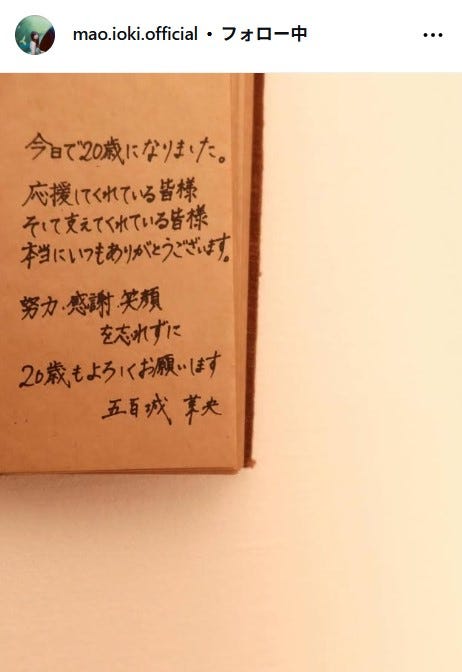 mao.ioki.official • フォロー中
今日で20歳になりました。
応援してくれている皆様
そして支えてくれている皆様
本当にいつもありがとうございます。
努力.感謝.笑顔
を忘れずに
20歳もよろしくお願いします
五百城 茉央